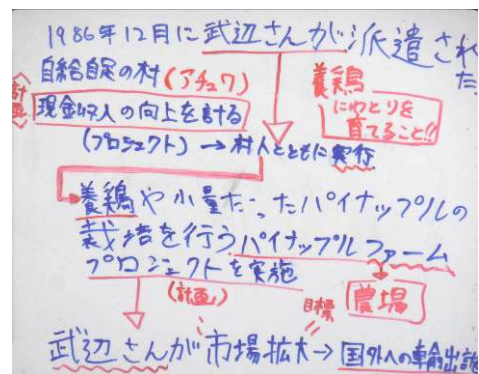 1986年12月に武辺さんが派遣された
自給自足の村(アチュワ)
養鶏
にわとりを
育てること!!
〈計画〉
現金収入の向上を計る
(プロジェクト)→村人とともに実行
養鶏や小量だったパイナップルの
栽培を行うパイナップルファーム
プロジェクトを実施
(計画)
目標
農場
武辺さんが市場拡大→国外への輸出